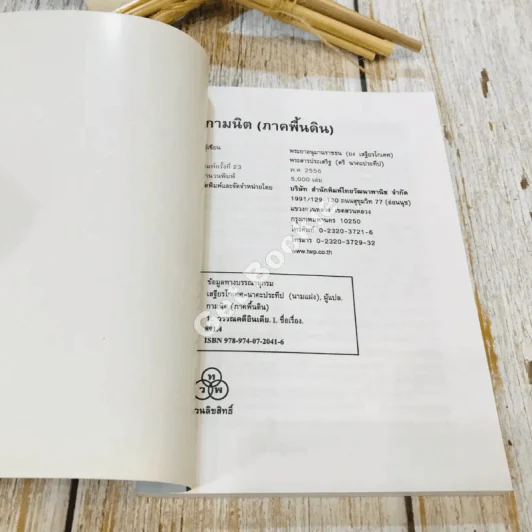 กามนิต (ภาคพื้นดิน)
ผู้เขียน พระยาอนุมานราชธน (ยง เสฐียรโกเศศ)
พระสารประเสริฐ (ตรี นาคะประทีป)
พิมพ์ครั้งที่ 23 พ.ศ. 2556
จำนวนพิมพ์ 5,000 เล่ม
จัดพิมพ์และจัดจำหน่ายโดย บริษัท สำนักพิมพ์ไทยวัฒนาพานิช จำกัด
ถนนสุขุมวิท 77 (อ่อนนุช)
แขวงสวนหลวง เขตสวนหลวง
กรุงเทพมหานคร 10250
โทรศัพท์ 0-2320-3721-6
โทรสาร 0-2320-3729-32
www.twp.co.th
ข้อมูลทางบรรณานุกรม
เสฐียรโกเศศ-นาคะประทีป (นามแฝง), ผู้แปล.
กามนิต (ภาคพื้นดิน)
1. วรรณคดีอินเดีย. I. ชื่อเรื่อง.
ISBN 978-974-07-2041-6
ท
ว พ
สงวนลิขสิทธิ์